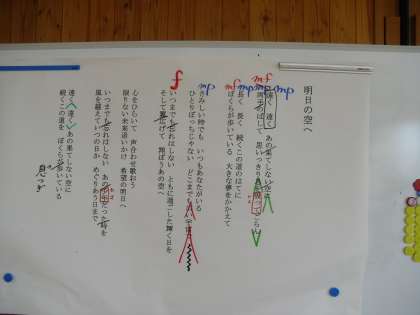 明日の空へ
mf
mp
遠く 遠く あの果てしない空に
両手のばして 思いっきり
mf
mp
長く 長く 続くこの道のはてに
ぼくらが歩いている 大きな夢をかかえて
mp
さみしい時でも いつもあなたがいる
ひとりぼっちじゃない どこまでも
f
いつまでも忘れはしない ともに過ごした輝く日を
そして翼広げて 翔ぼうあの空へ
心をひらいて 声合わせ歌おう
限りない未来追いかけ 希望の明日へ
いつまでも忘れはしない あの 時を
風を越えていつの日か めぐりあう日まで
遠く 遠く あの果てしない空に
続くこの道を ぼくらが歩いている
息つぎ